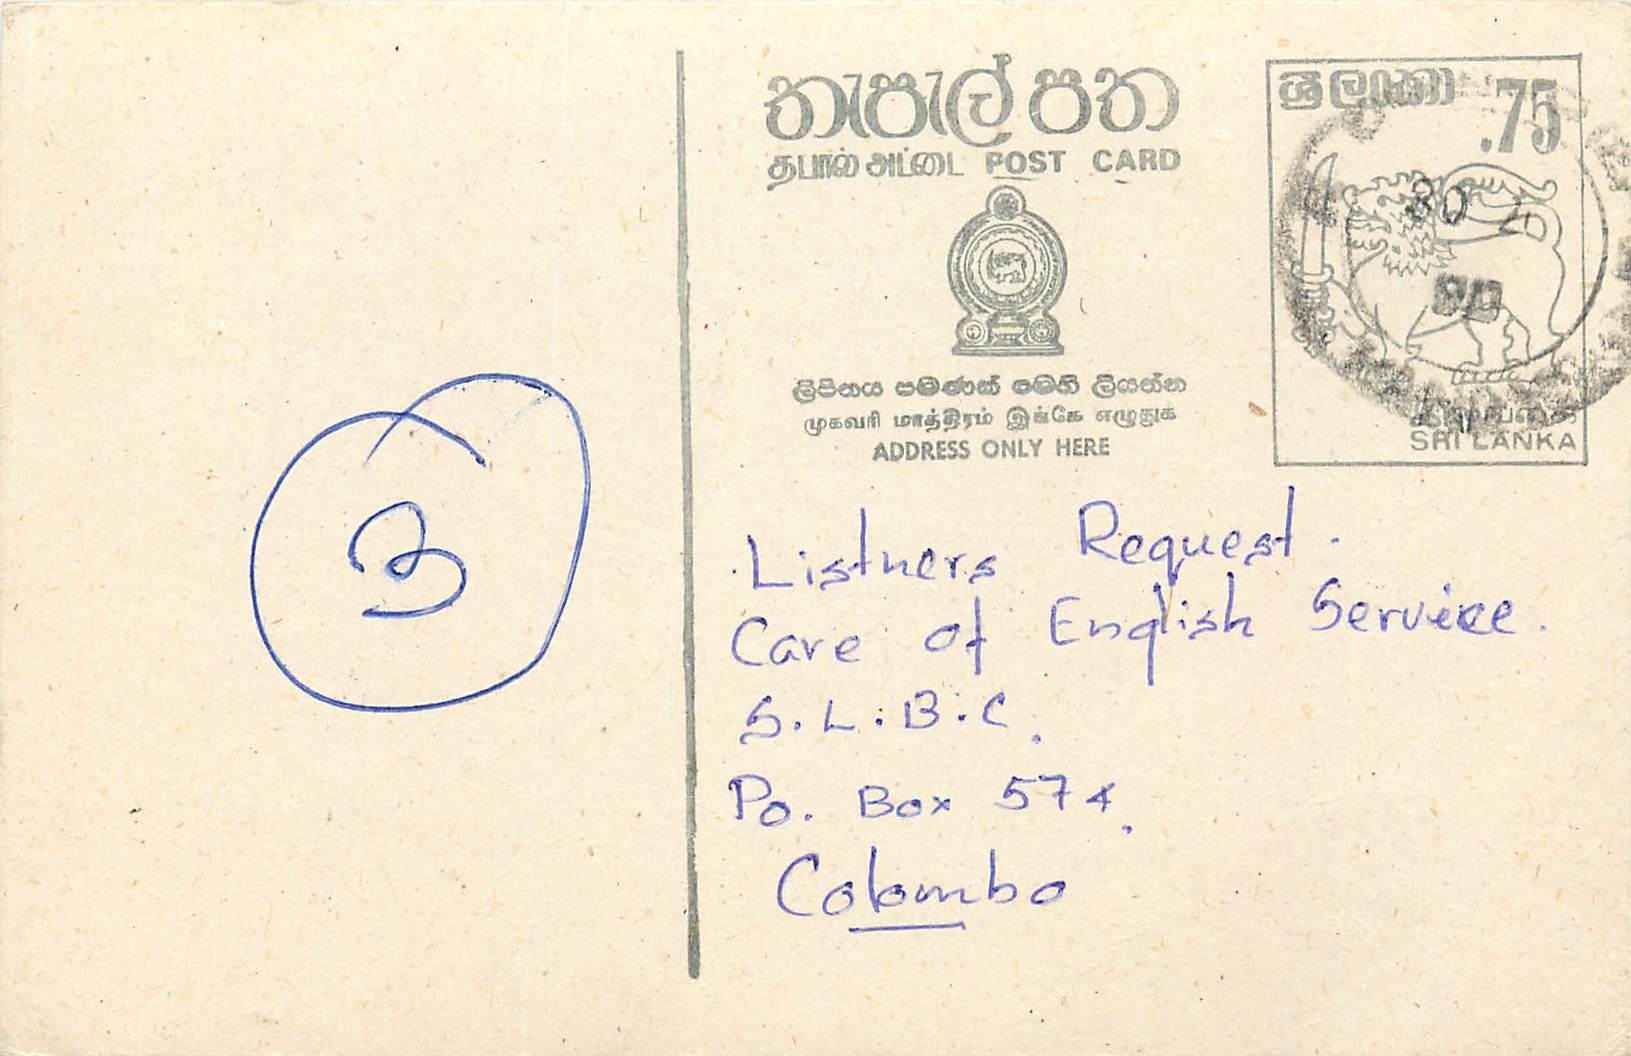 තැපැල් පත
தபால் அட்டை POST CARD
ලිපිනය පමණක් මෙහි ලියන්න
முகவரி மாத்திரம் இங்கே எழுதுக
ADDRESS ONLY HERE
ශ්‍රී ලංකා .75
80
SRI LANKA
3
Listners Request.
Care of English Service.
S.L.B.C.
Po. Box 574.
Colombo